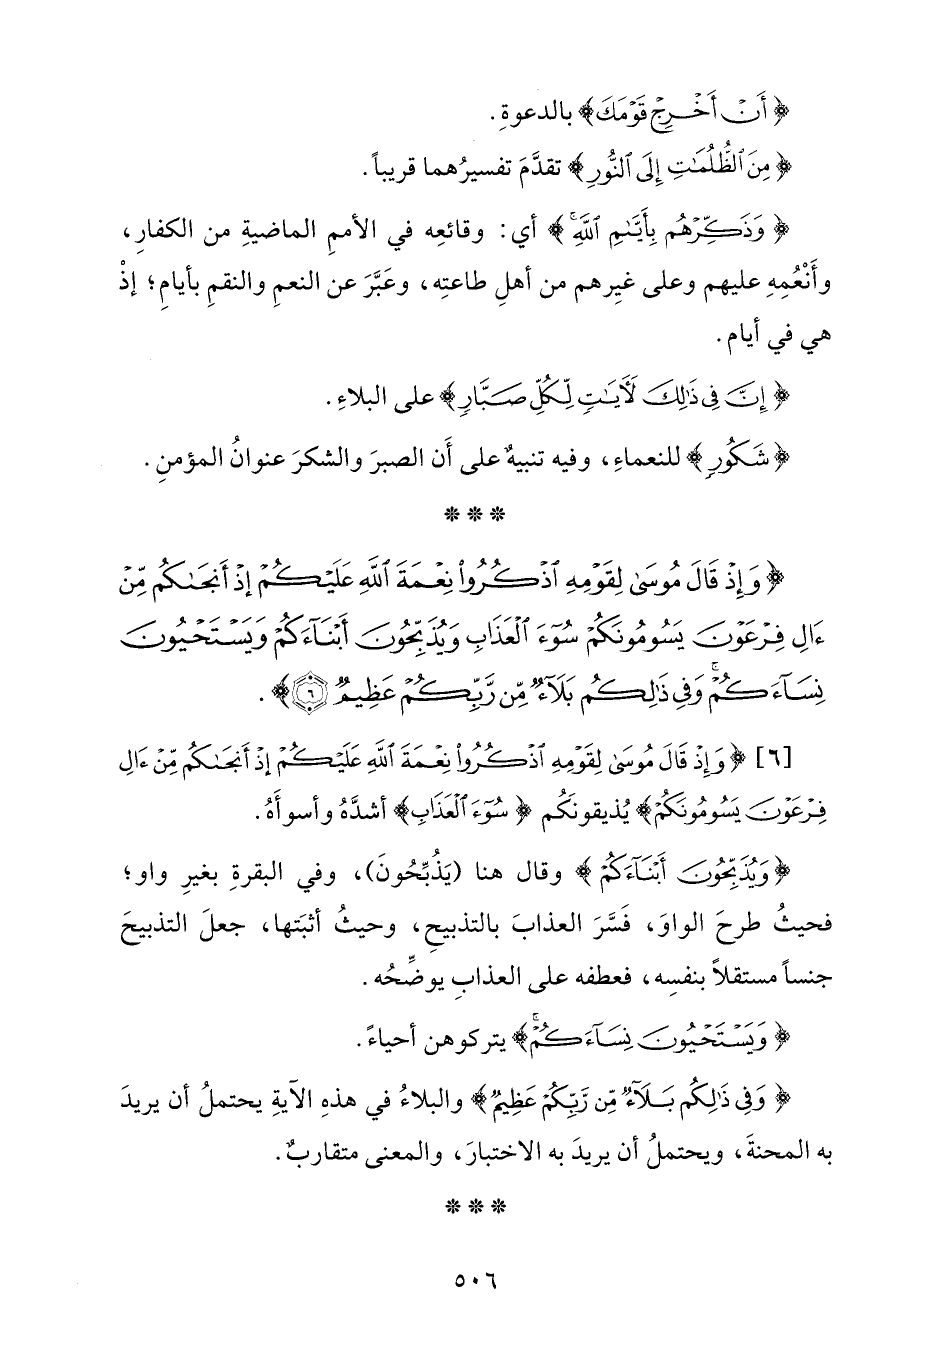 ﴿أَنْ أَخْرِجْ قَوْمَكَ﴾ بالدعوةِ.
﴿مِنَ ٱلظُّلُمَٰتِ إِلَى ٱلنُّورِ﴾ تقدَّمَ تفسيرُهما قريباً.
﴿وَذَكِّرْهُم بِأَيَّىٰمِ ٱللَّهِۚ﴾ أي: وقائعِه في الأممِ الماضيةِ من الكفارِ،
وأَنْعُمِهِ عليهم وعلى غيرِهم من أهلِ طاعتِه، وعَبَّرَ عن النعمِ والنقمِ بأيامٍ؛ إذْ
هي في أيام.
﴿إِنَّ فِى ذَٰلِكَ لَأَيَٰتٍ لِّكُلِّ صَبَّارٍ﴾ على البلاءِ.
﴿شَكُورٍ﴾ للنعماءِ، وفيه تنبيهٌ على أَن الصبرَ والشكرَ عنوانُ المؤمنِ.
* * *
﴿وَإِذْ قَالَ مُوسَىٰ لِقَوْمِهِ ٱذْكُرُوا۟ نِعْمَةَ ٱللَّهِ عَلَيْكُمْ إِذْ أَنجَىٰكُم مِّنْ
ءَالِ فِرْعَوْنَ يَسُومُونَكُمْ سُوٓءَ ٱلْعَذَابِ وَيُذَبِّحُونَ أَبْنَآءَكُمْ وَيَسْتَحْيُونَ
نِسَآءَكُمْۚ وَفِى ذَٰلِكُم بَلَآءٌ مِّن رَّبِّكُمْ عَظِيمٌ ۝٦﴾.
[٦] ﴿وَإِذْ قَالَ مُوسَىٰ لِقَوْمِهِ ٱذْكُرُوا۟ نِعْمَةَ ٱللَّهِ عَلَيْكُمْ إِذْ أَنجَىٰكُم مِّنْ ءَالِ
فِرْعَوْنَ يَسُومُونَكُمْ﴾ يُذيقونَكُم ﴿سُوٓءَ ٱلْعَذَابِ﴾ أشدَّهُ وأسوأَهُ.
﴿وَيُذَبِّحُونَ أَبْنَآءَكُمْ﴾ وقال هنا (يَذُبِّحُونَ)، وفي البقرةِ بغيرِ واو؛
فحيثُ طرحَ الواوَ، فَسَّرَ العذابَ بالتذبيحِ، وحيثُ أثبتَها، جعلَ التذبيحَ
جنساً مستقلاً بنفسِه، فعطفه على العذابِ يوضِّحُه.
﴿وَيَسْتَحْيُونَ نِسَآءَكُمْۚ﴾ يتركوهن أحياءً.
﴿وَفِى ذَٰلِكُم بَلَآءٌ مِّن رَّبِّكُمْ عَظِيمٌ﴾ والبلاءُ في هذهِ الآيةِ يحتملُ أن يريدَ
به المحنةَ، ويحتملُ أن يريدَ به الاختبارَ، والمعنى متقاربٌ.
* * *
٥٠٦